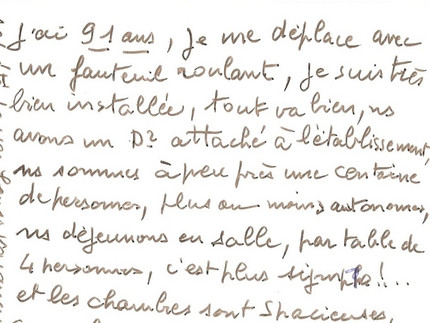 J'ai 91 ans, je me déplace avec
un fauteuil roulant, je suis très
bien installée, tout va bien, ns
avons un Dr attaché à l'établissement,
ns sommes à peu près une centaine
de personnes, plus ou moins autonomes,
ns déjeunons en salle, par table de
4 personnes, c'est plus !...
et les chambres sont spacieuses,